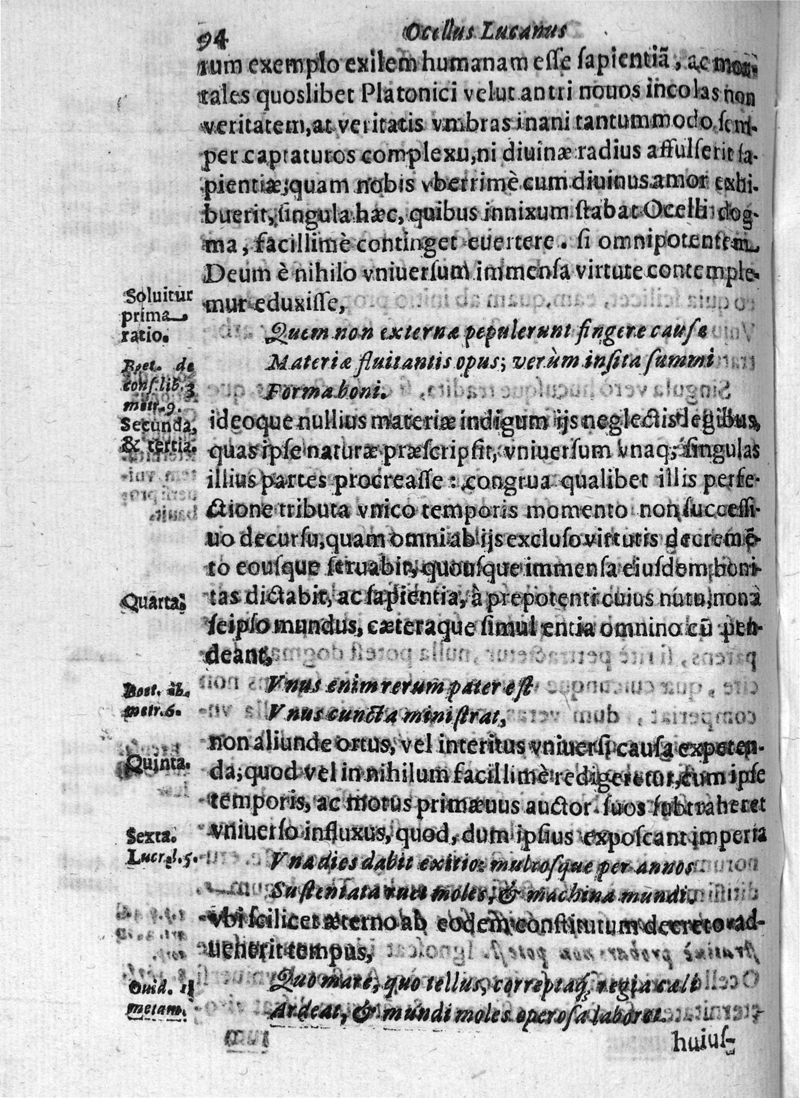 94
Ocellus Lucanus
rum exemplo exilem humanam eſſe ſapientiā, ac mor-
tales quoslibet Platonici velut antri nouos incolas non
veritatem, at veritatis vmbras inani tantummodo ſem-
per captaturos complexu, ni diuinæ radius affulſerit ſa-
pientiæ; quam nobis vberrimè cum diuinus amor exhi-
buerit, ſingula hæc, quibus innixum ſtabat Ocelli dog-
ma, facillimè continget euertere. ſi omnipotentem
Deum è nihilo vniuerſum immenſa virtute contemple-
Soluitur
prima
ratio.
mur eduxiſſe,
Quem non externæ pepulerunt fingere cauſæ
Boet. de
conſ. lib. 3
metr. 9.
Materiæ fluitantis opus; verùm inſita ſummi
Forma boni.
Secunda,
& tertia.
ideoque nullius materiæ indigum ijs neglectis legibus,
quas ipſe naturæ præſcripſit, vniuerſum vnaq; ſingulas
illius partes procreaſſe: congrua qualibet illis perfe-
ctione tributa vnico temporis momento non ſucceſſi-
uo decurſu, quam omni ab ijs excluſo virtutis decremē-
to eouſque ſeruabit, quouſque immenſa eiuſdem boni-
Quarta.
tas dictabit, ac ſapientia, à prepotenti cuius nutu, non à
ſeipſo mundus, cæteraque ſimul entia omnino cū pen-
deant,
Boet. ib.
metr. 6.
Vnus enim rerum pater eſt
Vnus cuncta miniſtrat,
non aliunde ortus, vel interitus vniuerſi cauſa expeten-
Quinta.
da, quod vel in nihilum facillimè redigeretur, cum ipſe
temporis, ac motus primæuus auctor ſuos ſubtraheret
vniuerſo influxus, quod, dum ipſius expoſcant imperia
Sexta.
Lucr. l. 5.
Vna dies dabit exitio: multoſque per annos
Suſtentata ruet moles, & machina mundi.
vbi ſcilicet æterno ab eodem conſtitutum decreto ad-
uenerit tempus,
Ouid. 1
metam.
Quo mare, quo tellus, correptaq; regia cæli
Ardeat, & mundi moles operoſa laboret.
huiuſ-